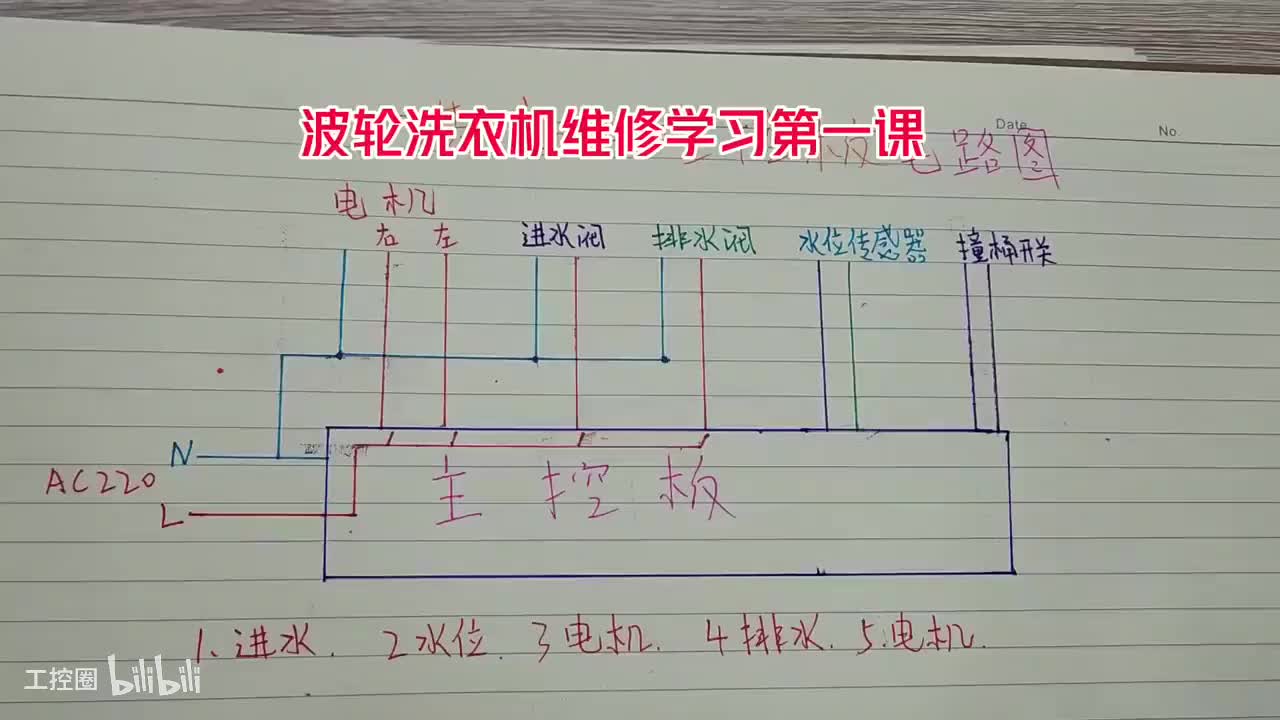 波轮洗衣机维修学习第一课
Date
No.
电路图
电机
右 左 进水阀 排水阀 水位传感器 撞桶开关
N
AC220
L
主控板
1.进水. 2水位. 3电机. 4排水. 5.电机.
工控圈 bilibili